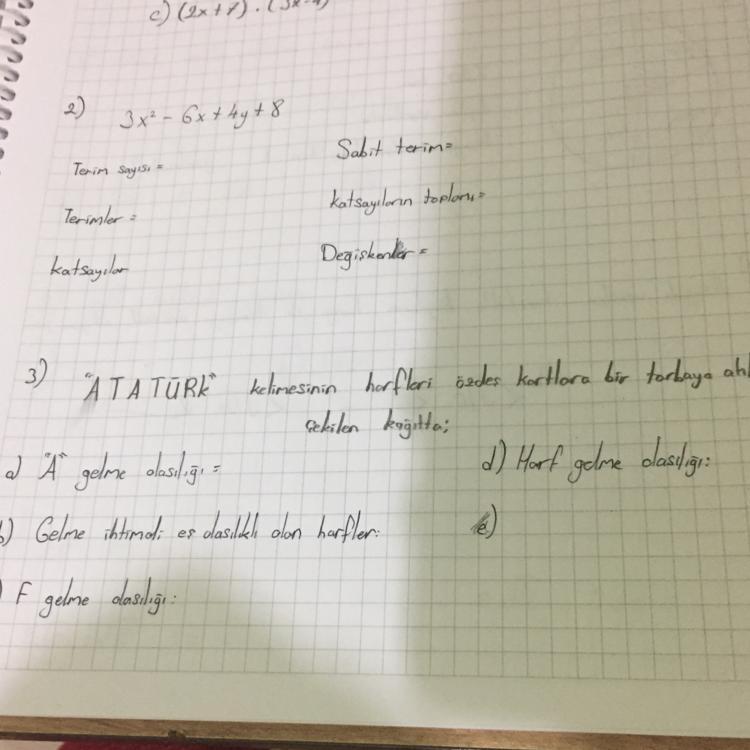 c) (2x+7) . (3x-4)
2) 3x² - 6x + 4y + 8
Terim sayısı =
Sabit terim=
Terimler =
katsayıların toplamı=
katsayılar
Degişkenler =
3) "ATATÜRK" kelimesinin harfleri özdes kartlara bir torbaya
çekilen kağıtta;
a) "A" gelme olasılığı =
d) Harf gelme olasılığı:
b) Gelme ihtimali eş olasılıklı olan harfler:
e)
F gelme olasılığı: